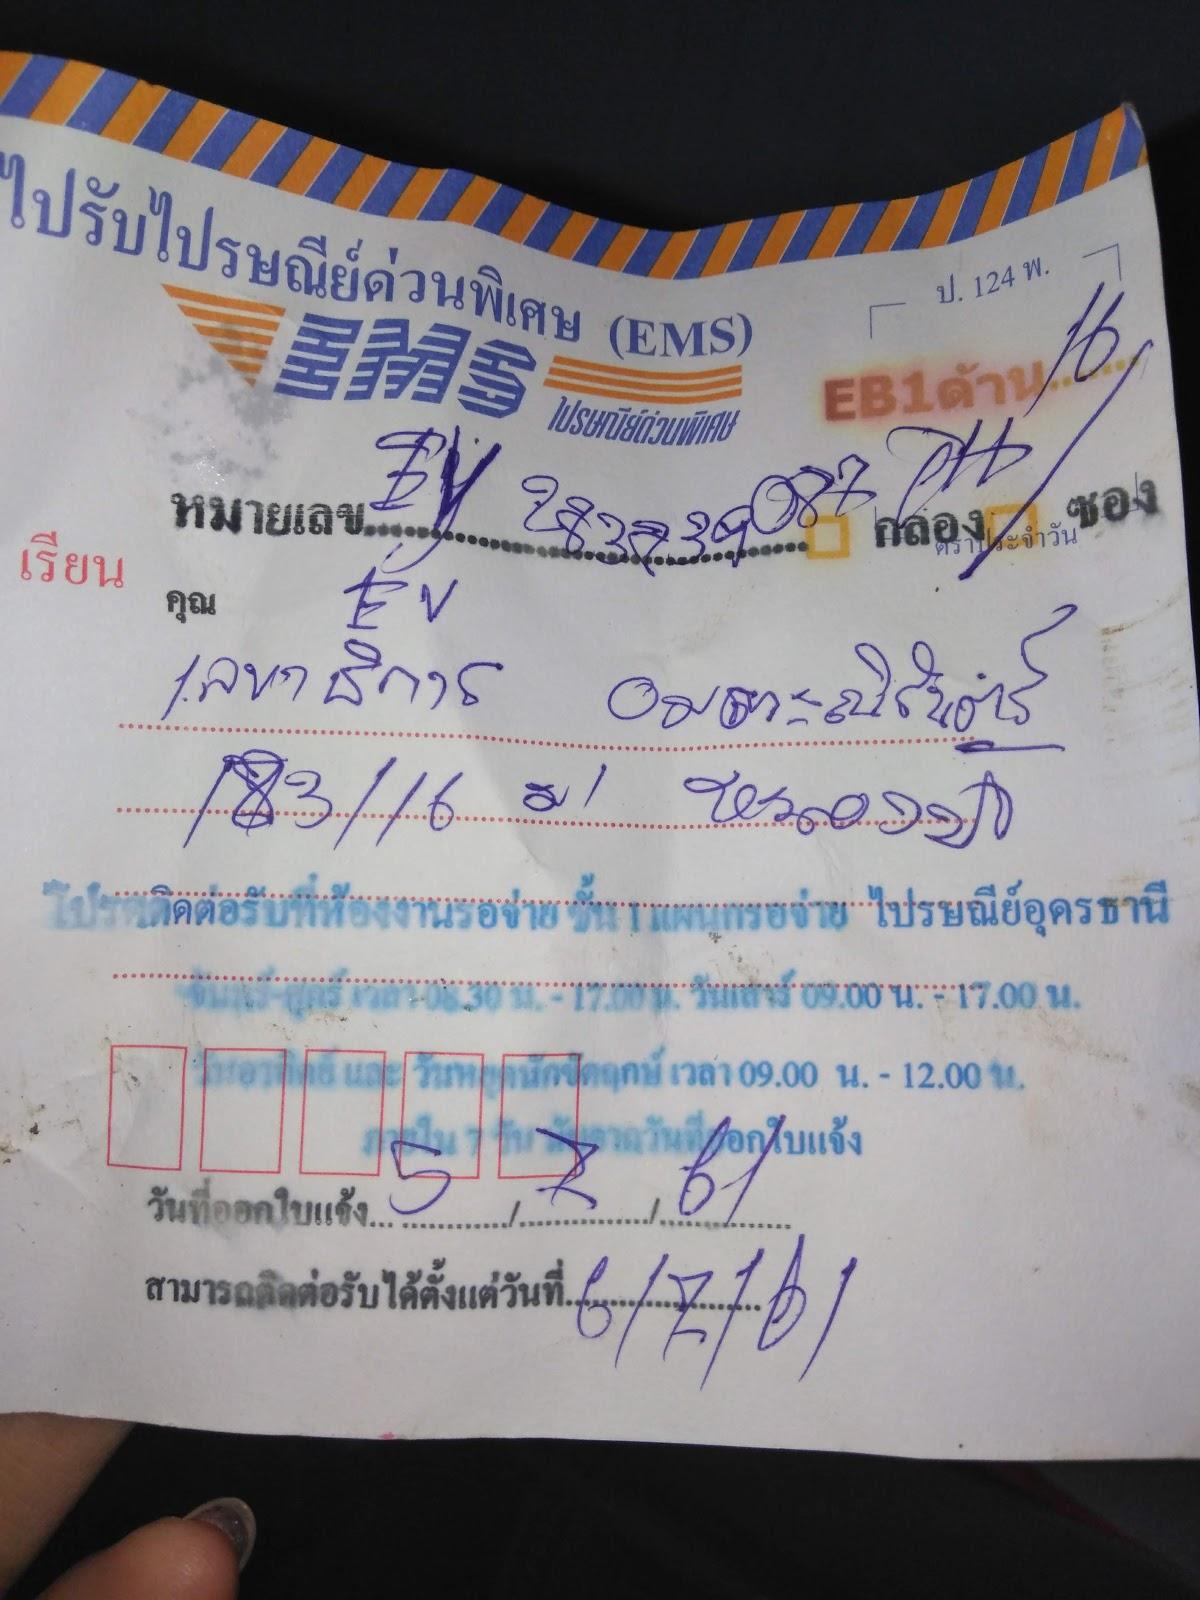 ไปรับไปรษณีย์ด่วนพิเศษ (EMS)
ป. 124 พ.
EMS
ไปรษณีย์ด่วนพิเศษ
EB1ด้าน........ 16
หมายเลข EV 2838 39 087 TH กล่อง ซอง
ตราประจำวัน
เรียน
คุณ EV
เลขาธิการ
183/16 ม1
โปรดติดต่อรับที่ห้องงานรอจ่าย ชั้น 1 แผนกรอจ่าย ไปรษณีย์อุดรธานี
จันทร์-ศุกร์ เวลา 08.30 น. - 17.00 น. วันเสาร์ 09.00 น. - 17.00 น.
วันอาทิตย์ และ วันหยุดนักขัตฤกษ์ เวลา 09.00 น. - 12.00 น.
ภายใน 7 วัน นับจากวันที่ออกใบแจ้ง
วันที่ออกใบแจ้ง... 5 / 7 / 61
สามารถติดต่อรับได้ตั้งแต่วันที่ 6/7/61